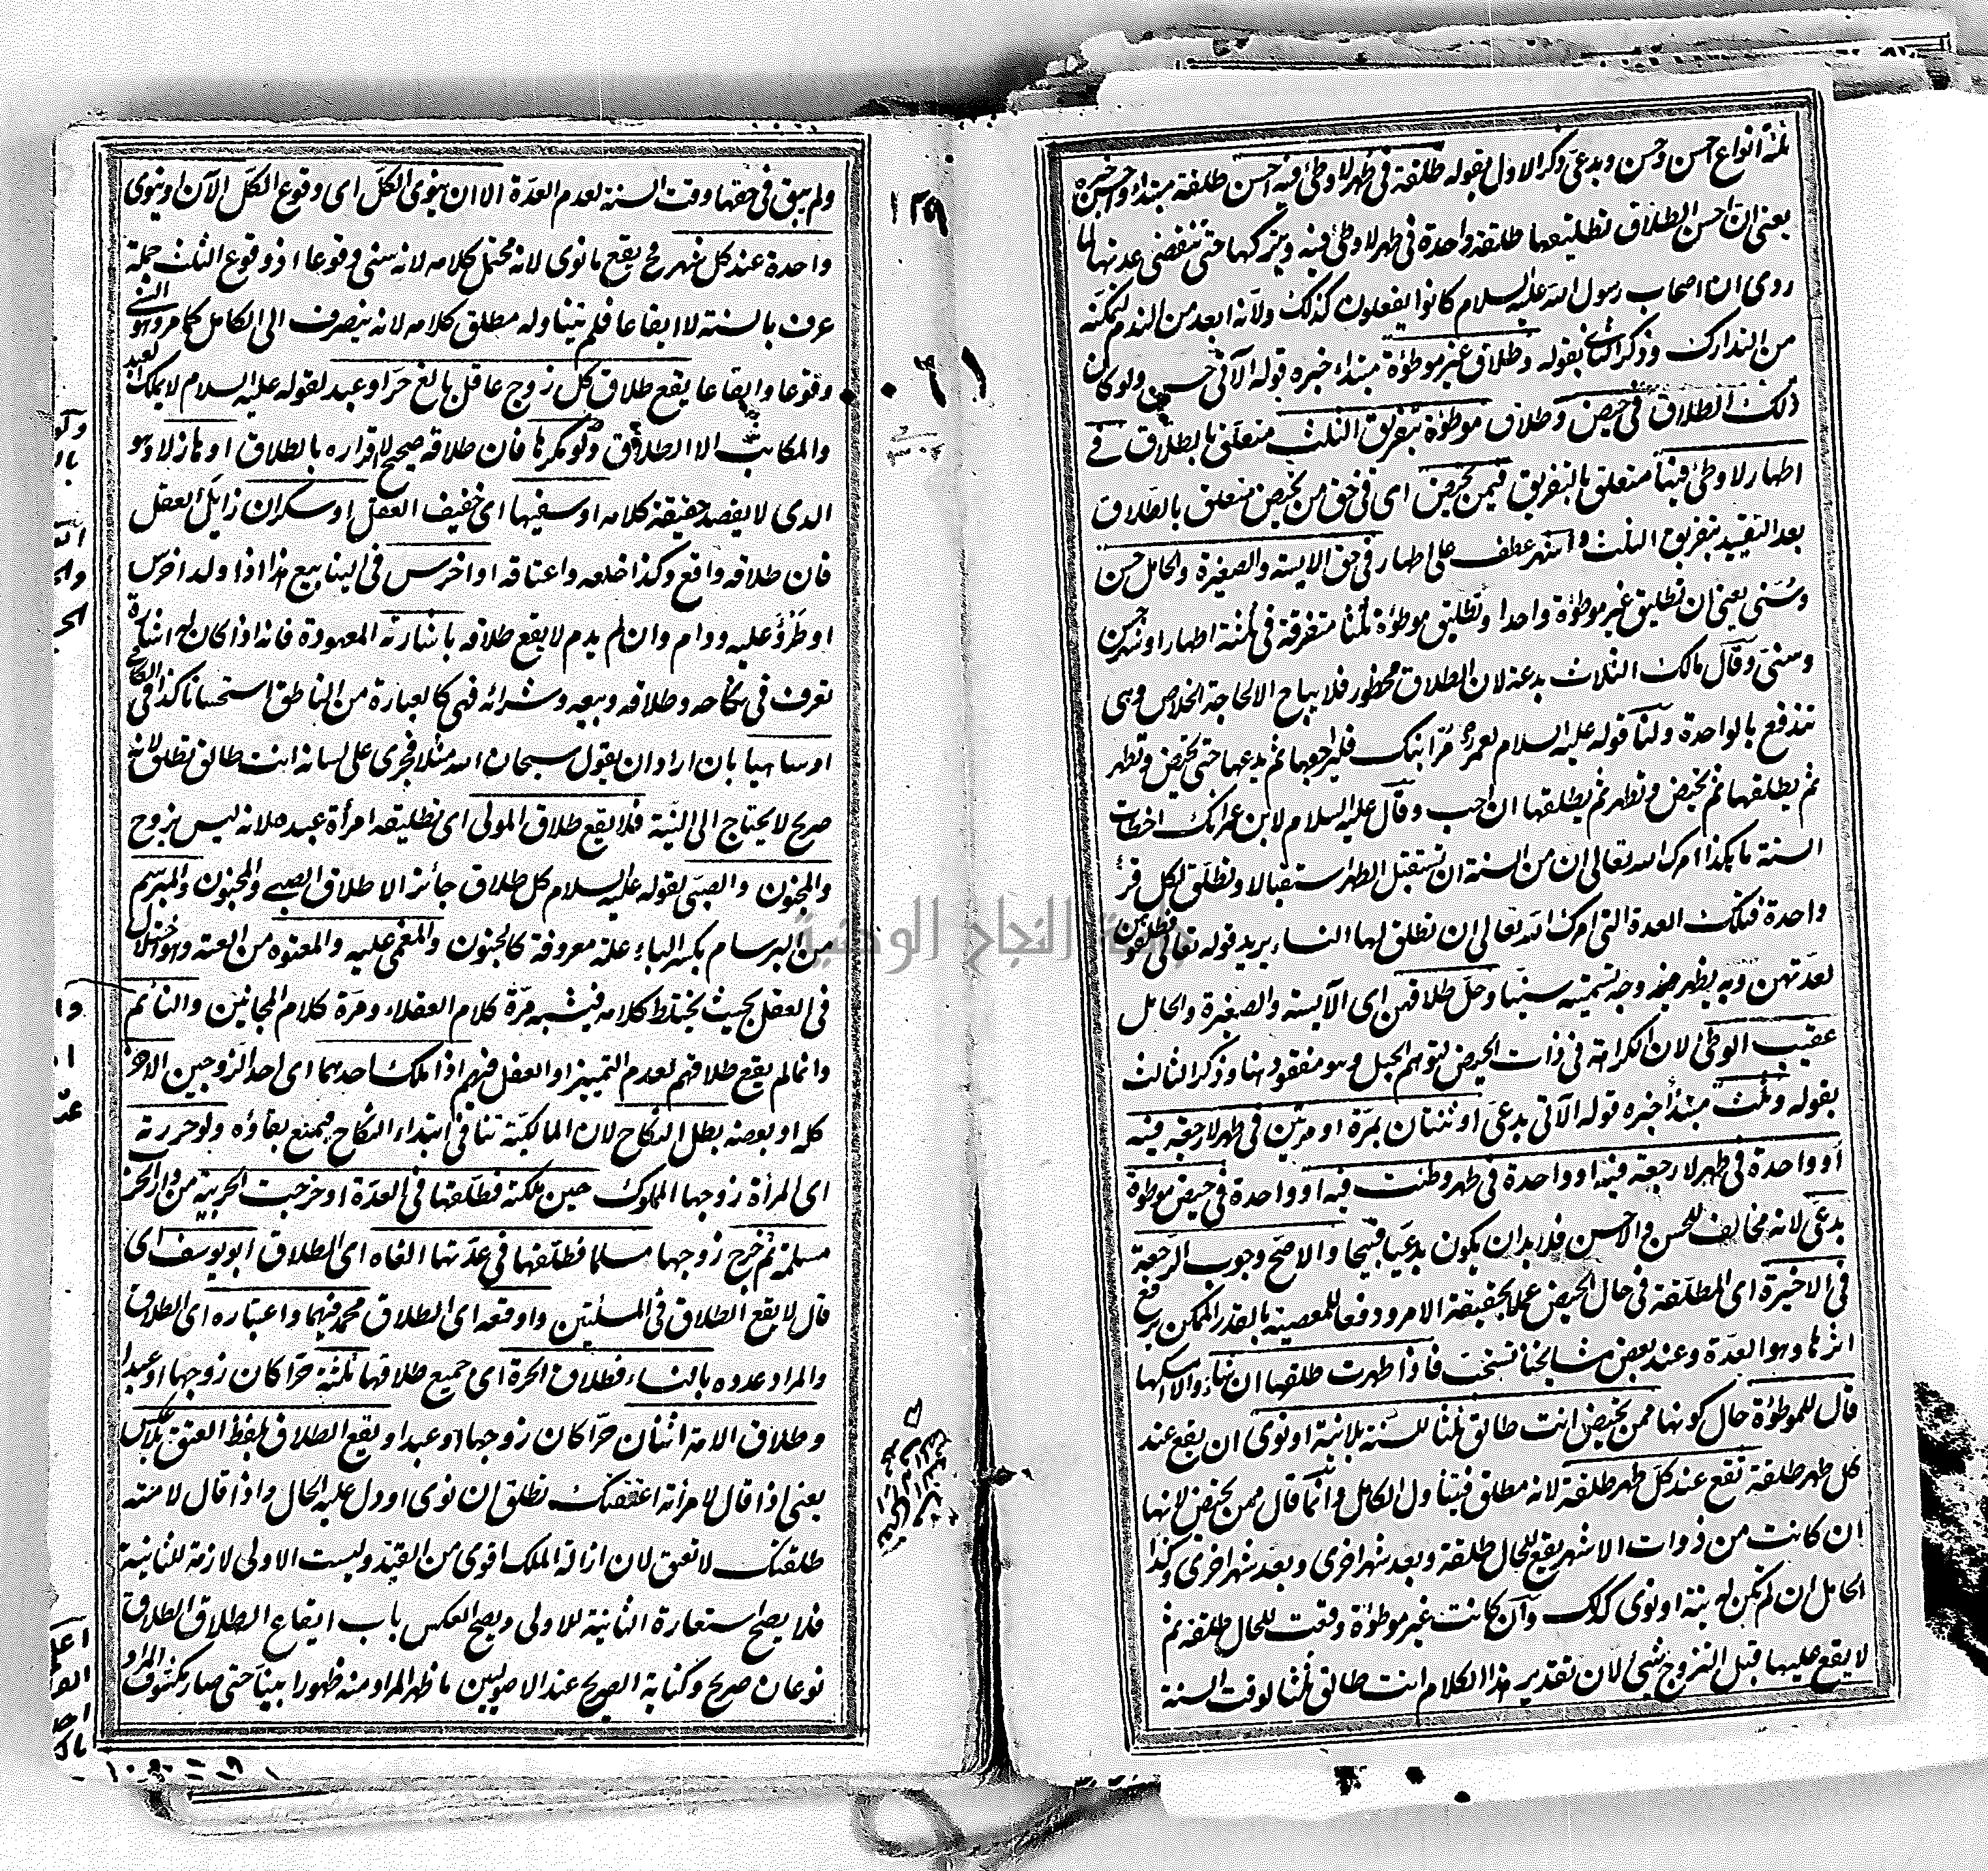 ثلثة انواع احسن وحسن وبدعى وذكر الاول بقوله طلقة فى طهر لا وطئ فيه احسن طلقة مبتدا واحسن خبره
يعنى ان احسن الطلاق تطليقها طلقة واحدة فى طهر لا وطئ فيه ويتركها حتى تنقضى عدتها لما
روى ان اصحاب رسول الله عليه السلام كانوا يفعلون كذلك ولانه ابعد من الندم لتمكنه
من التدارك وذكر الثانى بقوله وطلاق غير موطؤة مبتداء خبره قوله الآتى حسن ولو كان
ذلك الطلاق فى حيض وطلاق موطؤة بتفريق الثلث متعلق بالطلاق فى
اطهار لا وطئ فيها متعلق بالتفريق فيمن تحيض اى فى حق من تحيض متعلق بالطلاق
بعد التقييد بتفريق الثلث واشهر عطف على اطهار فى حق الايسة والصغيرة والحامل حسن
وسنى يعنى ان تطليق غير موطؤة واحدا وتطليق موطؤة ثلثا متفرقة فى ثلثة اطهار او شهر حسن
وسنى وقال مالك الثلاث بدعة لان الطلاق محظور فلا يباح الا لحاجة الخلاص وهى
تندفع بالواحدة ولنا قوله عليه السلام لعمر مر ابنك فليراجعها ثم يدعها حتى تحيض وتطهر
ثم يطلقها ثم تحيض وتطهر ثم يطلقها ان احب وقال عليه السلام لابن عمر انك اخطات
السنة ما هكذا امرك الله تعالى ان من السنة ان تستقبل الطهر استقبالا وتطلق لكل قرأ
واحدة فتلك العدة التى امرك الله تعالى ان تطلق لها النساء يريد قوله تعالى فطلقوهن
لعدتهن وبه يظهر وجه تسميته سنيا وحل طلاقهن اى الآيسة والصغيرة والحامل
عقيب الوطئ لان الكراهة فى ذات الحيض لتوهم الحبل وهو مفقود هنا وذكر الثالث
بقوله وثلث مبتدأ خبره قوله الآتى بدعى او ثنتان بمرة او مرتين فى طهر لا رجعة فيه
او واحدة فى طهر لا رجعة فيه او واحدة فى طهر وطئت فيه او واحدة فى حيض موطؤة
بدعى لانه مخالف للحسن والاحسن فلا بد ان يكون بدعيا قبيحا والاصح وجوب الرجعة
فى الاخيرة اى المطلقة فى حال الحيض عملا بحقيقة الامر ودفعا للمعصية بالقدر الممكن برفع
اثرها وهو العدة وعند بعض مشايخنا تستحب فاذا طهرت طلقها ان شاء والا امسكها
قال للموطؤة حال كونها ممن تحيض انت طالق ثلثا للسنة بلا نية او نوى ان يقع عند
كل طهر طلقة تقع عند كل طهر طلقة لانه مطلق فيتناول الكامل وانما قال ممن تحيض لانها
ان كانت من ذوات الاشهر يقع للحال طلقة وبعد شهر اخرى وبعد شهر اخرى وكذا
الحامل ان لم تكن له نية او نوى كذلك وان كانت غير موطؤة وقعت للحال طلقة ثم
لا يقع عليها قبل التزوج شئ لان تقدير هذا الكلام انت طالق ثلثا لوقت السنة
ولم يبق فى حقها وقت السنة لعدم العدة الا ان ينوى الكل اى وقوع الكل الآن او ينوى
واحدة عند كل شهر فح يقع ما نوى لانه محتمل كلامه لانه سنى وقوعا اذ وقوع الثلث جملة
عرف بالسنة لا ايقاعا فلم يتناوله مطلق كلامه لانه ينصرف الى الكامل كما مر وهو السنى
وقوعا وايقاعا يقع طلاق كل زوج عاقل بالغ حر او عبد لقوله عليه السلام لا يملك العبد
والمكاتب الا الطلاق ولو مكرها فان طلاقه صحيح لا اقراره بالطلاق او هازلا وهو
الذى لا يقصد حقيقة كلامه او سفيها اى خفيف العقل او سكران زايل العقل
فان طلاقه واقع وكذا خلعه واعتاقه او اخرس فى الينابيع هذا اذا ولد اخرس
او طرؤ عليه ودام وان لم يدم لا يقع طلاقه باشارته المعهودة فانه اذا كان له اشارة
تعرف فى نكاحه وطلاقه وبيعه وشرائه فهى كالعبارة من الناطق استحسانا كذا فى الكافى
او ساهيا بان اراد ان يقول سبحان الله مثلا فجرى على لسانه انت طالق تطلق لانه
صريح لا يحتاج الى النية فلا يقع طلاق المولى اى تطليقه امرأة عبده لانه ليس بزوج
والمجنون والصبى لقوله عليه السلام كل طلاق جائز الا طلاق الصبى والمجنون والمبرسم
من البرسام بكسر الباء علة معروفة كالجنون والمغمى عليه والمعتوه من العته وهو اختلال
فى العقل بحيث يختلط كلامه فيشبه مرة كلام العقلاء ومرة كلام المجانين والنائم
وانما لم يقع طلاقهم لعدم التمييز او العقل فيهم اذا ملك احدهما اى احد الزوجين الاخر
كله او بعضه بطل النكاح لان المالكية تنافى ابتداء النكاح فيمنع بقاؤه ولو حررته
اى المرأة زوجها المملوك حين ملكته فطلقها فى العدة او خرجت الحربية من دار الحرب
مسلمة ثم خرج زوجها مسلما فطلقها فى عدتها الغاه اى الطلاق ابو يوسف اى
قال لا يقع الطلاق فى المسئلتين واوقعه اى الطلاق محمد فيهما واعتباره اى الطلاق
والمراد عدده بالنساء فطلاق الحرة اى جميع طلاقها ثلثة حرا كان زوجها او عبدا
وطلاق الامة اثنان حرا كان زوجها او عبدا ويقع الطلاق بلفظ العتق بلا عكس
يعنى اذا قال لامرأته اعتقتك تطلق ان نوى او دل عليه الحال واذا قال لامته
طلقتك لا تعتق لان ازالة الملك اقوى من القيد وليست الاولى لازمة للثانية
فلا يصح استعارة الثانية للاولى ويصح العكس باب ايقاع الطلاق الطلاق
نوعان صريح وكناية الصريح عند الاصوليين ما ظهر المراد منه ظهورا بينا حتى صار مكشوف المراد
١٢٥
جامعة النجاح الوطنية